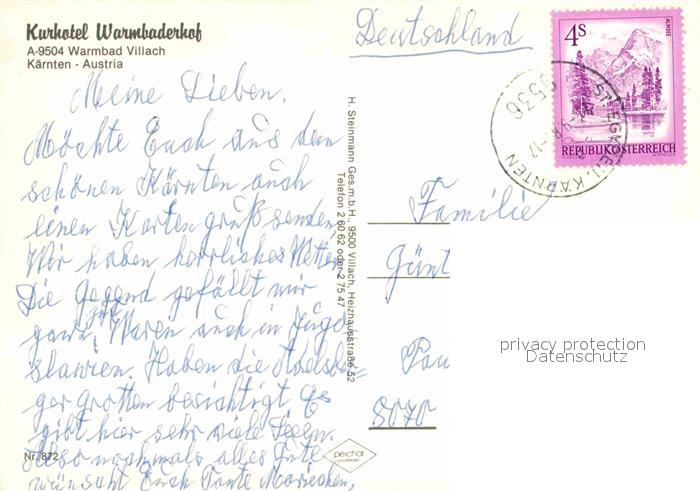 Kurhotel Warmbaderhof
A-9504 Warmbad Villach
Kärnten - Austria
Meine Lieben.
Möchte Euch aus dem
schönen Kärnten auch
einen Kartengruß senden,
Wir haben herrliches Wetter
Die Gegend gefällt mir
ganz gut, Waren auch in Jugo
slawien. Haben die Adelsber=
ger Grotten besichtigt. Es
gibt hier sehr viele Seen.
Also nochmals alles Gute
wünscht Euch Tante Mariechen,
Nr. 872
H. Steinmann Ges.m.b.H., 9500 Villach, Heizhausstraße 52
Telefon 2 60 62 oder 2 75 47
peichär
Deutschland
4S
ALMSEE
REPUBLIK ÖSTERREICH
9536
ST. EGYDEN, KÄRNTEN
Familie
Günt
Pau
8070
privacy protection
Datenschutz